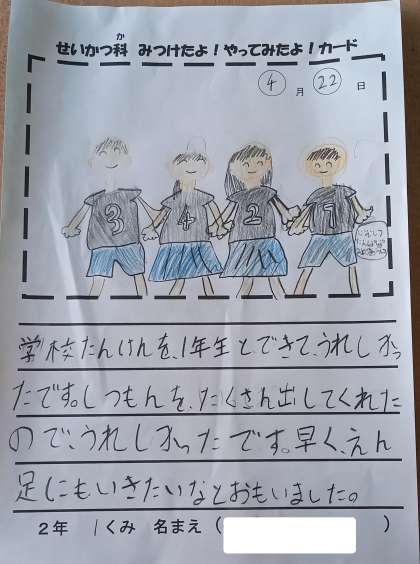 せいかつ科 みつけたよ!やってみたよ!カード
4月22日
3 4 2 1
学校たんけんを、1年生とできて、うれしかっ
たです。しつもんを、たくさん出してくれた
ので、うれしかったです。早く、えん
足にもいきたいなとおもいました。
2年 1くみ 名まえ( )